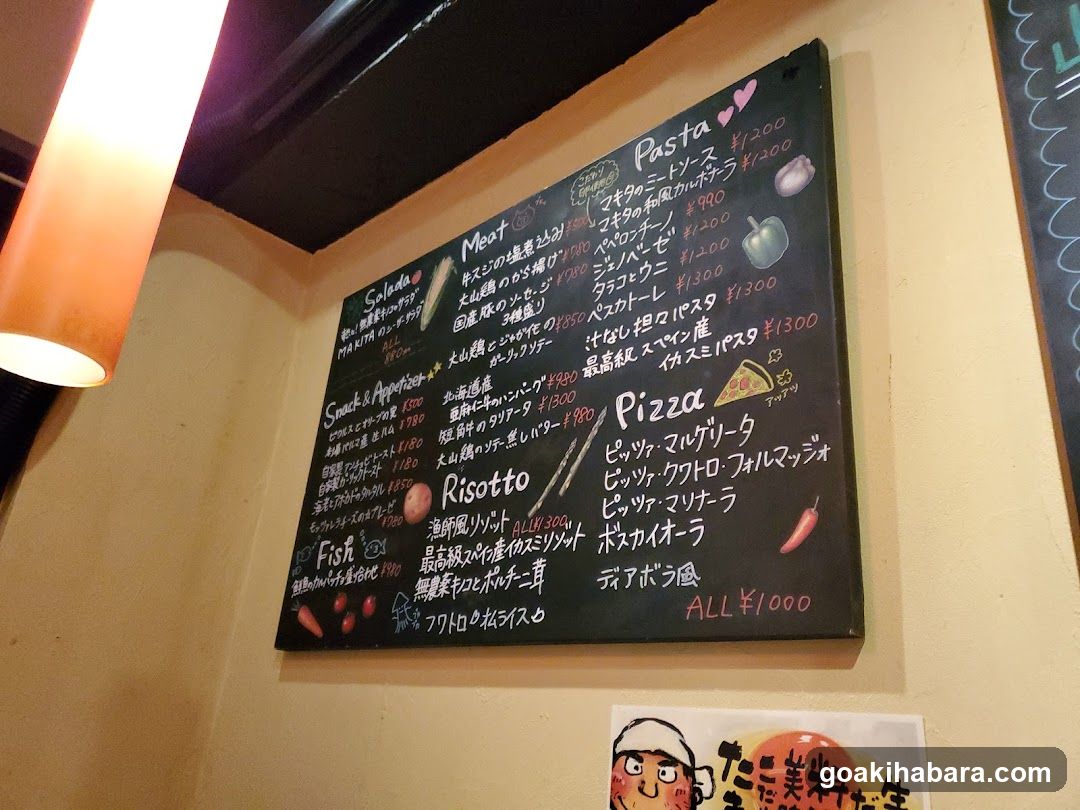 Salada
無農薬キノコのサラダ
MAKITAのシーザーサラダ
ALL
880
Snack & Appetizer
ピクルスとオリーブの実 ¥500
パルマ産 生ハム ¥980
自家製アンチョビトースト ¥180
自家製ガーリックトースト ¥180
海老とアボカドのタルタル ¥850
モッツァレラチーズのカプレーゼ ¥780
Fish
鮮魚のカルパッチョ盛り合わせ ¥980
Meat
牛スジの塩煮込み
大山鶏のから揚げ ¥780
国産豚のソーセージ ¥780
3種盛り
大山鶏とジャガイモの ¥850
ガーリックソテー
北海道産
亜麻仁牛のハンバーグ ¥980
短角牛のタリアータ ¥1300
大山鶏のソテー焦しバター ¥980
Risotto
漁師風リゾット ALL¥1300
最高級スペイン産イカスミリゾット
無農薬キノコとポルチーニ茸
フワトロオムライス
Pasta
こだわり
マキタのミートソース ¥1200
マキタの和風カルボナーラ ¥1200
ペペロンチーノ ¥990
ジェノベーゼ ¥1200
タラコとウニ ¥1200
ペスカトーレ ¥1300
汁なし担々パスタ ¥1300
最高級スペイン産
イカスミパスタ ¥1300
Pizza
アツアツ
ピッツァ・マルゲリータ
ピッツァ・クワトロ・フォルマッジォ
ピッツァ・マリナーラ
ボスカイオーラ
ディアボラ風
ALL ¥1000
goakihabara.com